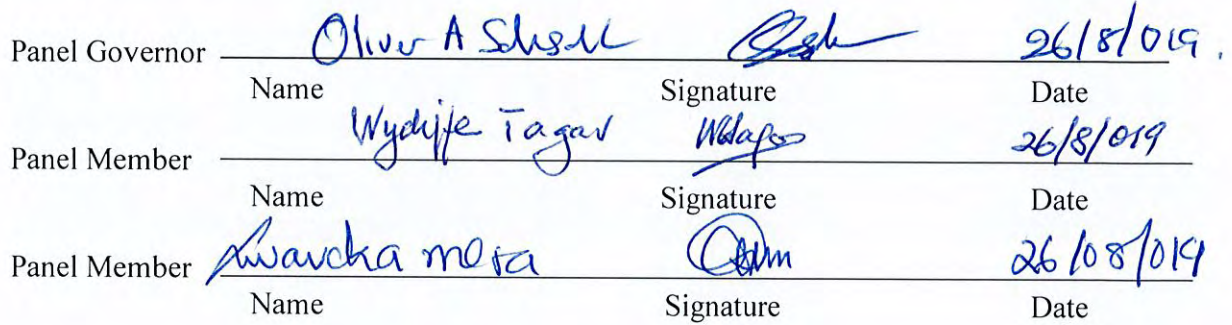 Panel Governor Oliver A 26/8/019.
Name Signature Date
Panel Member Wycliffe Tagar 26/8/019
Name Signature Date
Panel Member 26/08/019
Name Signature Date